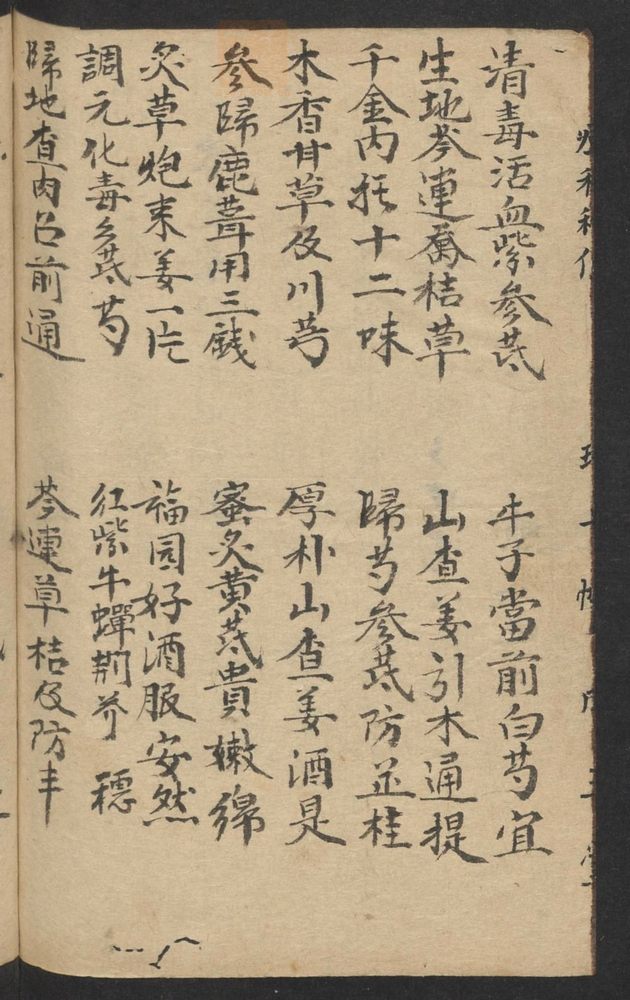 清毒活血紫參芪
牛子當前白芍宜
生地芩連喬桔草
山查姜引木通提
千金內托十二味
歸芍參芪防芷桂
木香甘草及川芎
厚朴山查姜酒是
參歸鹿茸用三錢
蜜炙黃芪貴嫩綿
炙草炮末姜一片
福圓好酒服安然
調元化毒參芪芍
紅紫牛蟬荆芥穗
歸地查肉召前通
芩連草桔及防丰